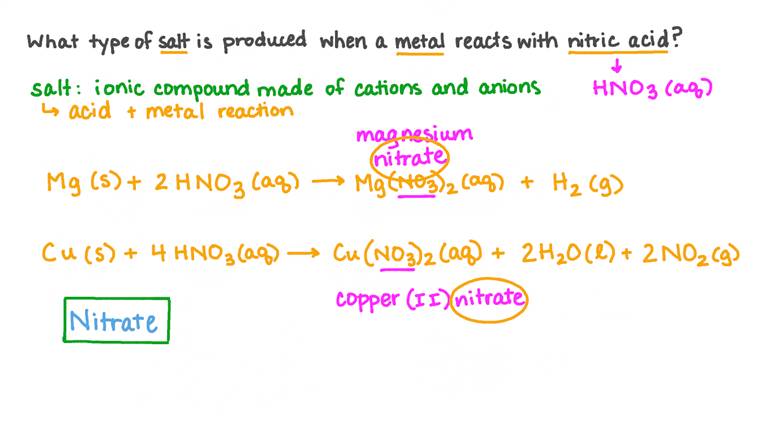 What type of salt is produced when a metal reacts with nitric acid?
salt: ionic compound made of cations and anions
HNO3 (aq)
↳ acid + metal reaction
magnesium
nitrate
Mg (s) + 2 HNO3 (aq) → Mg(NO3)2 (aq) + H2 (g)
Cu (s) + 4 HNO3 (aq) → Cu(NO3)2 (aq) + 2H2O(l) + 2NO2(g)
copper (II) nitrate
Nitrate